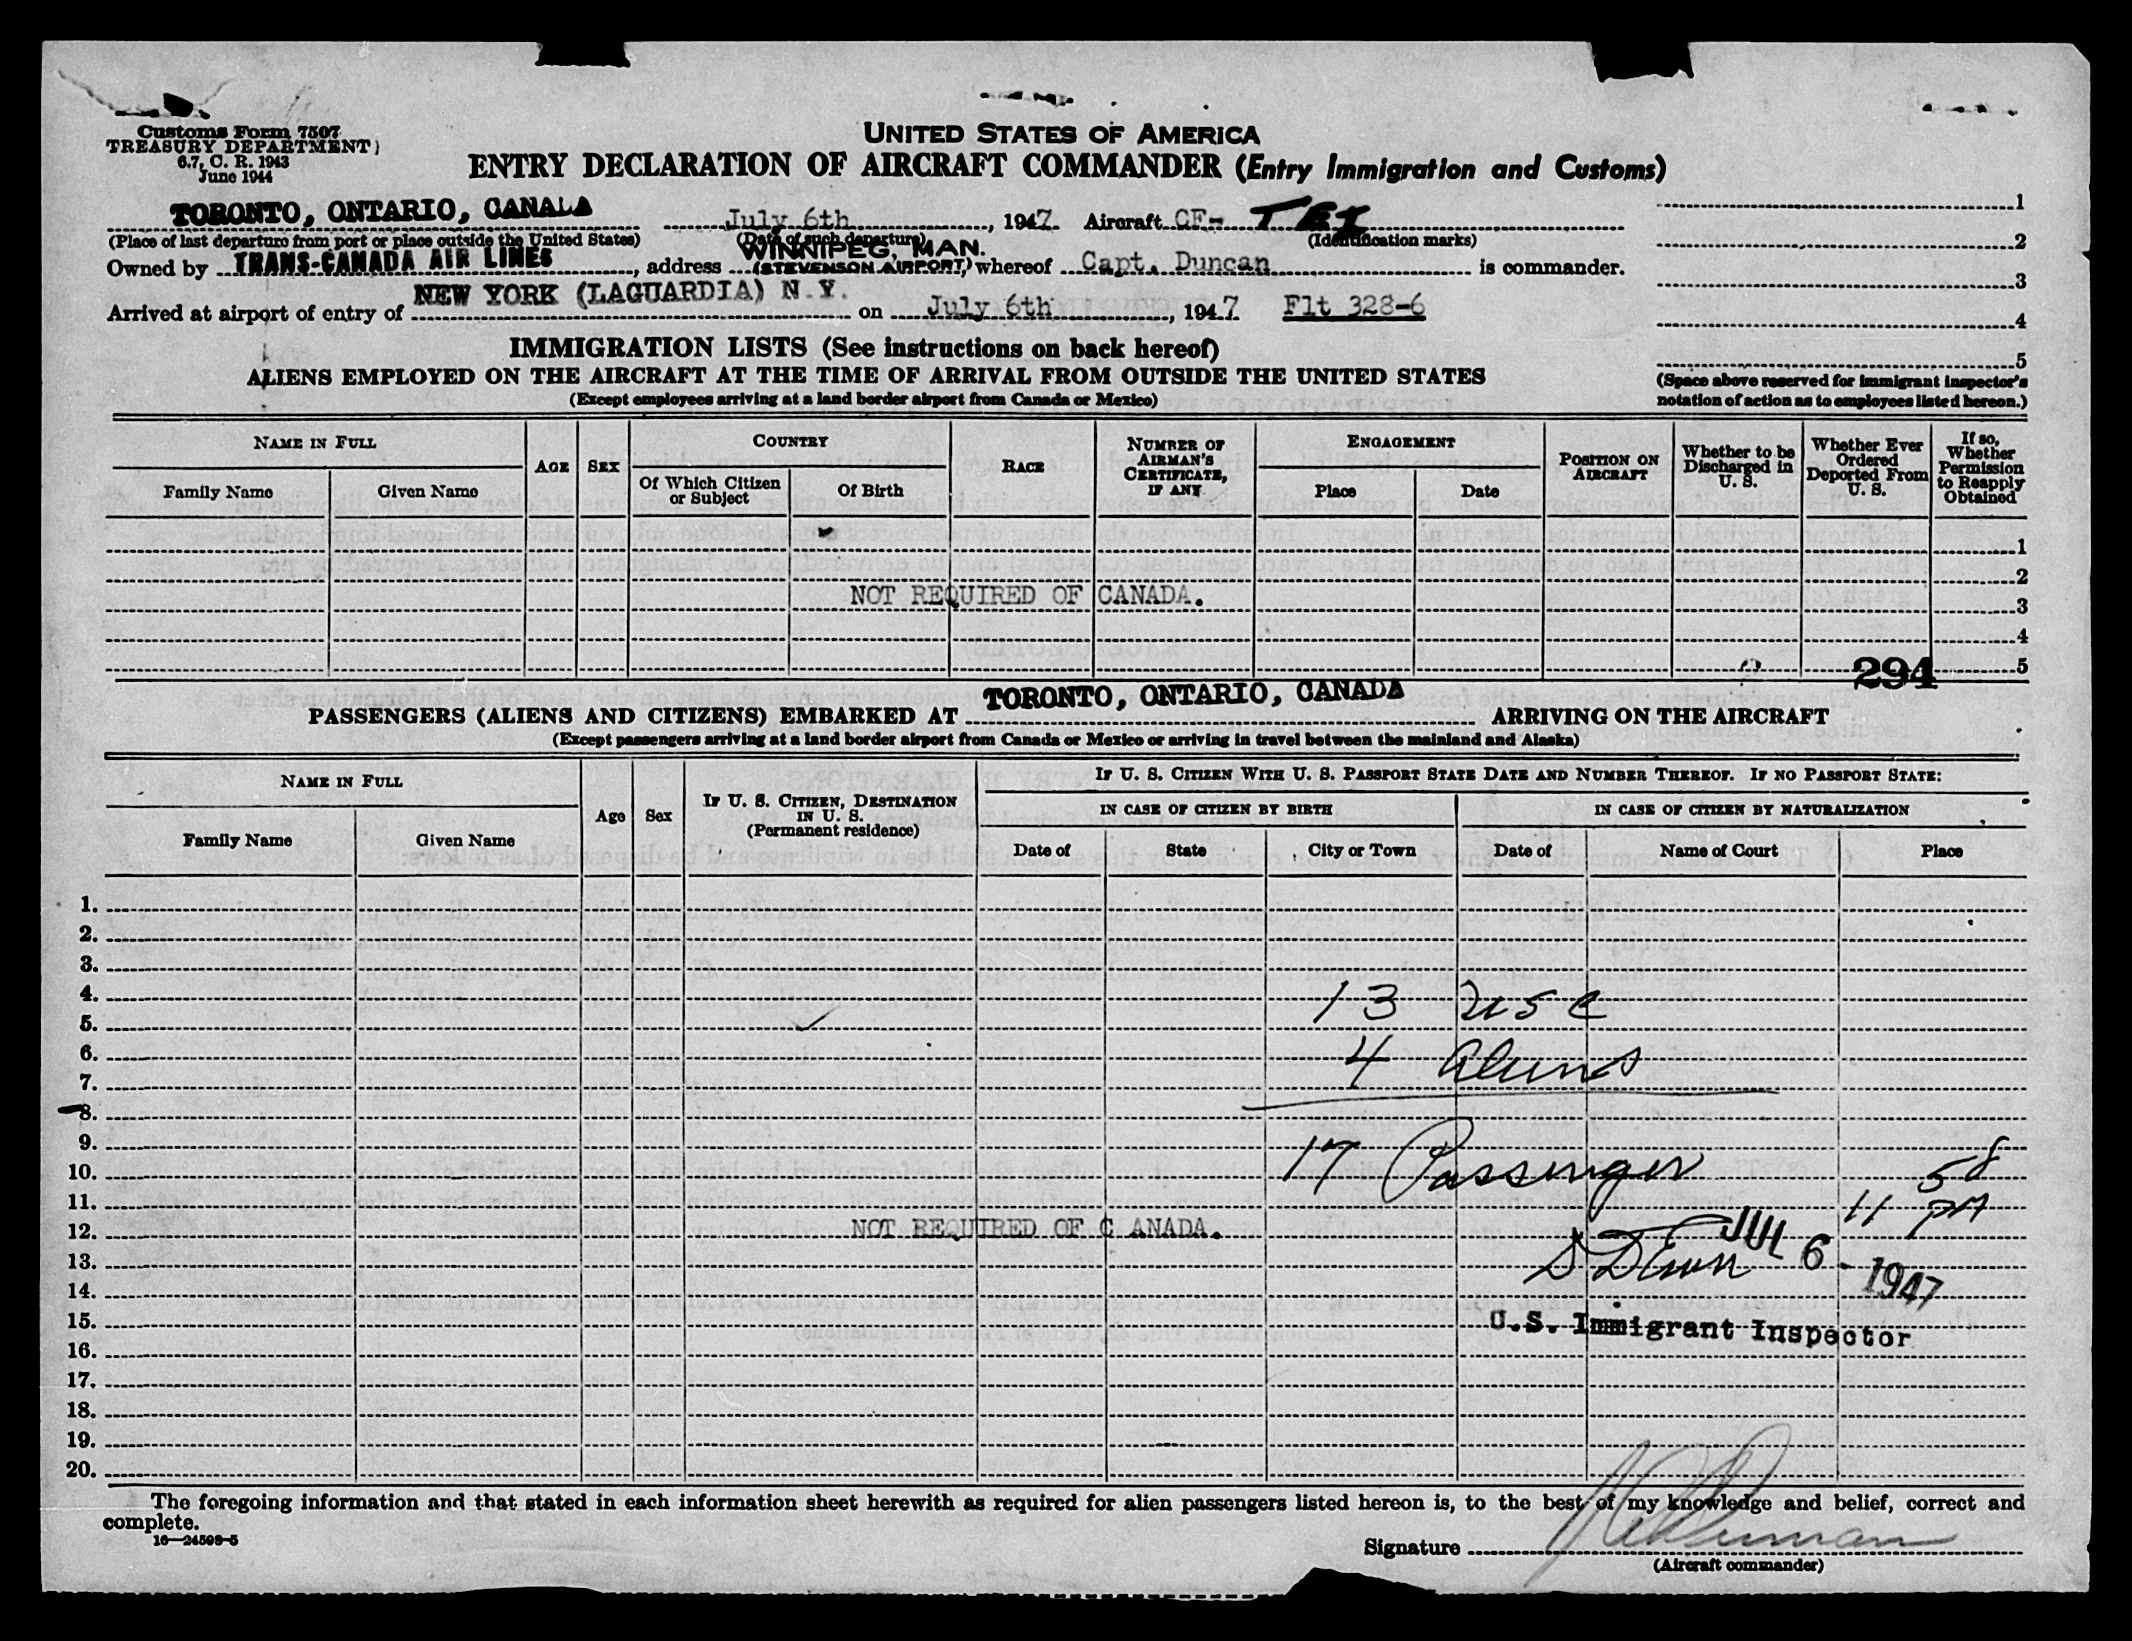 Customs Form 7507
TREASURY DEPARTMENT
6.7, C. R. 1943
June 1944
UNITED STATES OF AMERICA
ENTRY DECLARATION OF AIRCRAFT COMMANDER (Entry Immigration and Customs)
TORONTO, ONTARIO, CANADA July 6th, 1947 Aircraft CF- TEI
(Place of last departure from port or place outside the United States) (Date of such departure) (Identification marks)
Owned by TRANS-CANADA AIR LINES, address WINNIPEG, MAN. (STEVENSON AIRPORT) whereof Capt. Duncan is commander.
Arrived at airport of entry of NEW YORK (LAGUARDIA) N.Y. on July 6th, 1947 Flt 328-6
1
2
3
4
5
(Space above reserved for immigrant inspector's
notation of action as to employees listed hereon.)
IMMIGRATION LISTS (See instructions on back hereof)
ALIENS EMPLOYED ON THE AIRCRAFT AT THE TIME OF ARRIVAL FROM OUTSIDE THE UNITED STATES
(Except employees arriving at a land border airport from Canada or Mexico)
NAME IN FULL
Family Name Given Name
AGE SEX
COUNTRY
Of Which Citizen or Subject Of Birth
RACE
NUMBER OF AIRMAN'S CERTIFICATE, IF ANY
ENGAGEMENT
Place Date
POSITION ON AIRCRAFT
Whether to be Discharged in U. S.
Whether Ever Ordered Deported From U. S.
If so, Whether Permission to Reapply Obtained
1
2
NOT REQUIRED OF CANADA. 3
4
5
294
PASSENGERS (ALIENS AND CITIZENS) EMBARKED AT TORONTO, ONTARIO, CANADA ARRIVING ON THE AIRCRAFT
(Except passengers arriving at a land border airport from Canada or Mexico or arriving in travel between the mainland and Alaska)
NAME IN FULL
Family Name Given Name
Age Sex
IF U. S. CITIZEN, DESTINATION IN U. S. (Permanent residence)
IF U. S. CITIZEN WITH U. S. PASSPORT STATE DATE AND NUMBER THEREOF. IF NO PASSPORT STATE:
IN CASE OF CITIZEN BY BIRTH IN CASE OF CITIZEN BY NATURALIZATION
Date of State City or Town Date of Name of Court Place
1.
2.
3.
4. 13 USC
5.
6. 4 Aliens
7.
8.
9.
10. 17 Passenger 11 58 PM
11.
12. NOT REQUIRED OF C ANADA. JUL 6 - 1947
13.
14.
15. U.S. Immigrant Inspector
16.
17.
18.
19.
20.
The foregoing information and that stated in each information sheet herewith as required for alien passengers listed hereon is, to the best of my knowledge and belief, correct and
complete.
16—24598-5
Signature
(Aircraft commander)